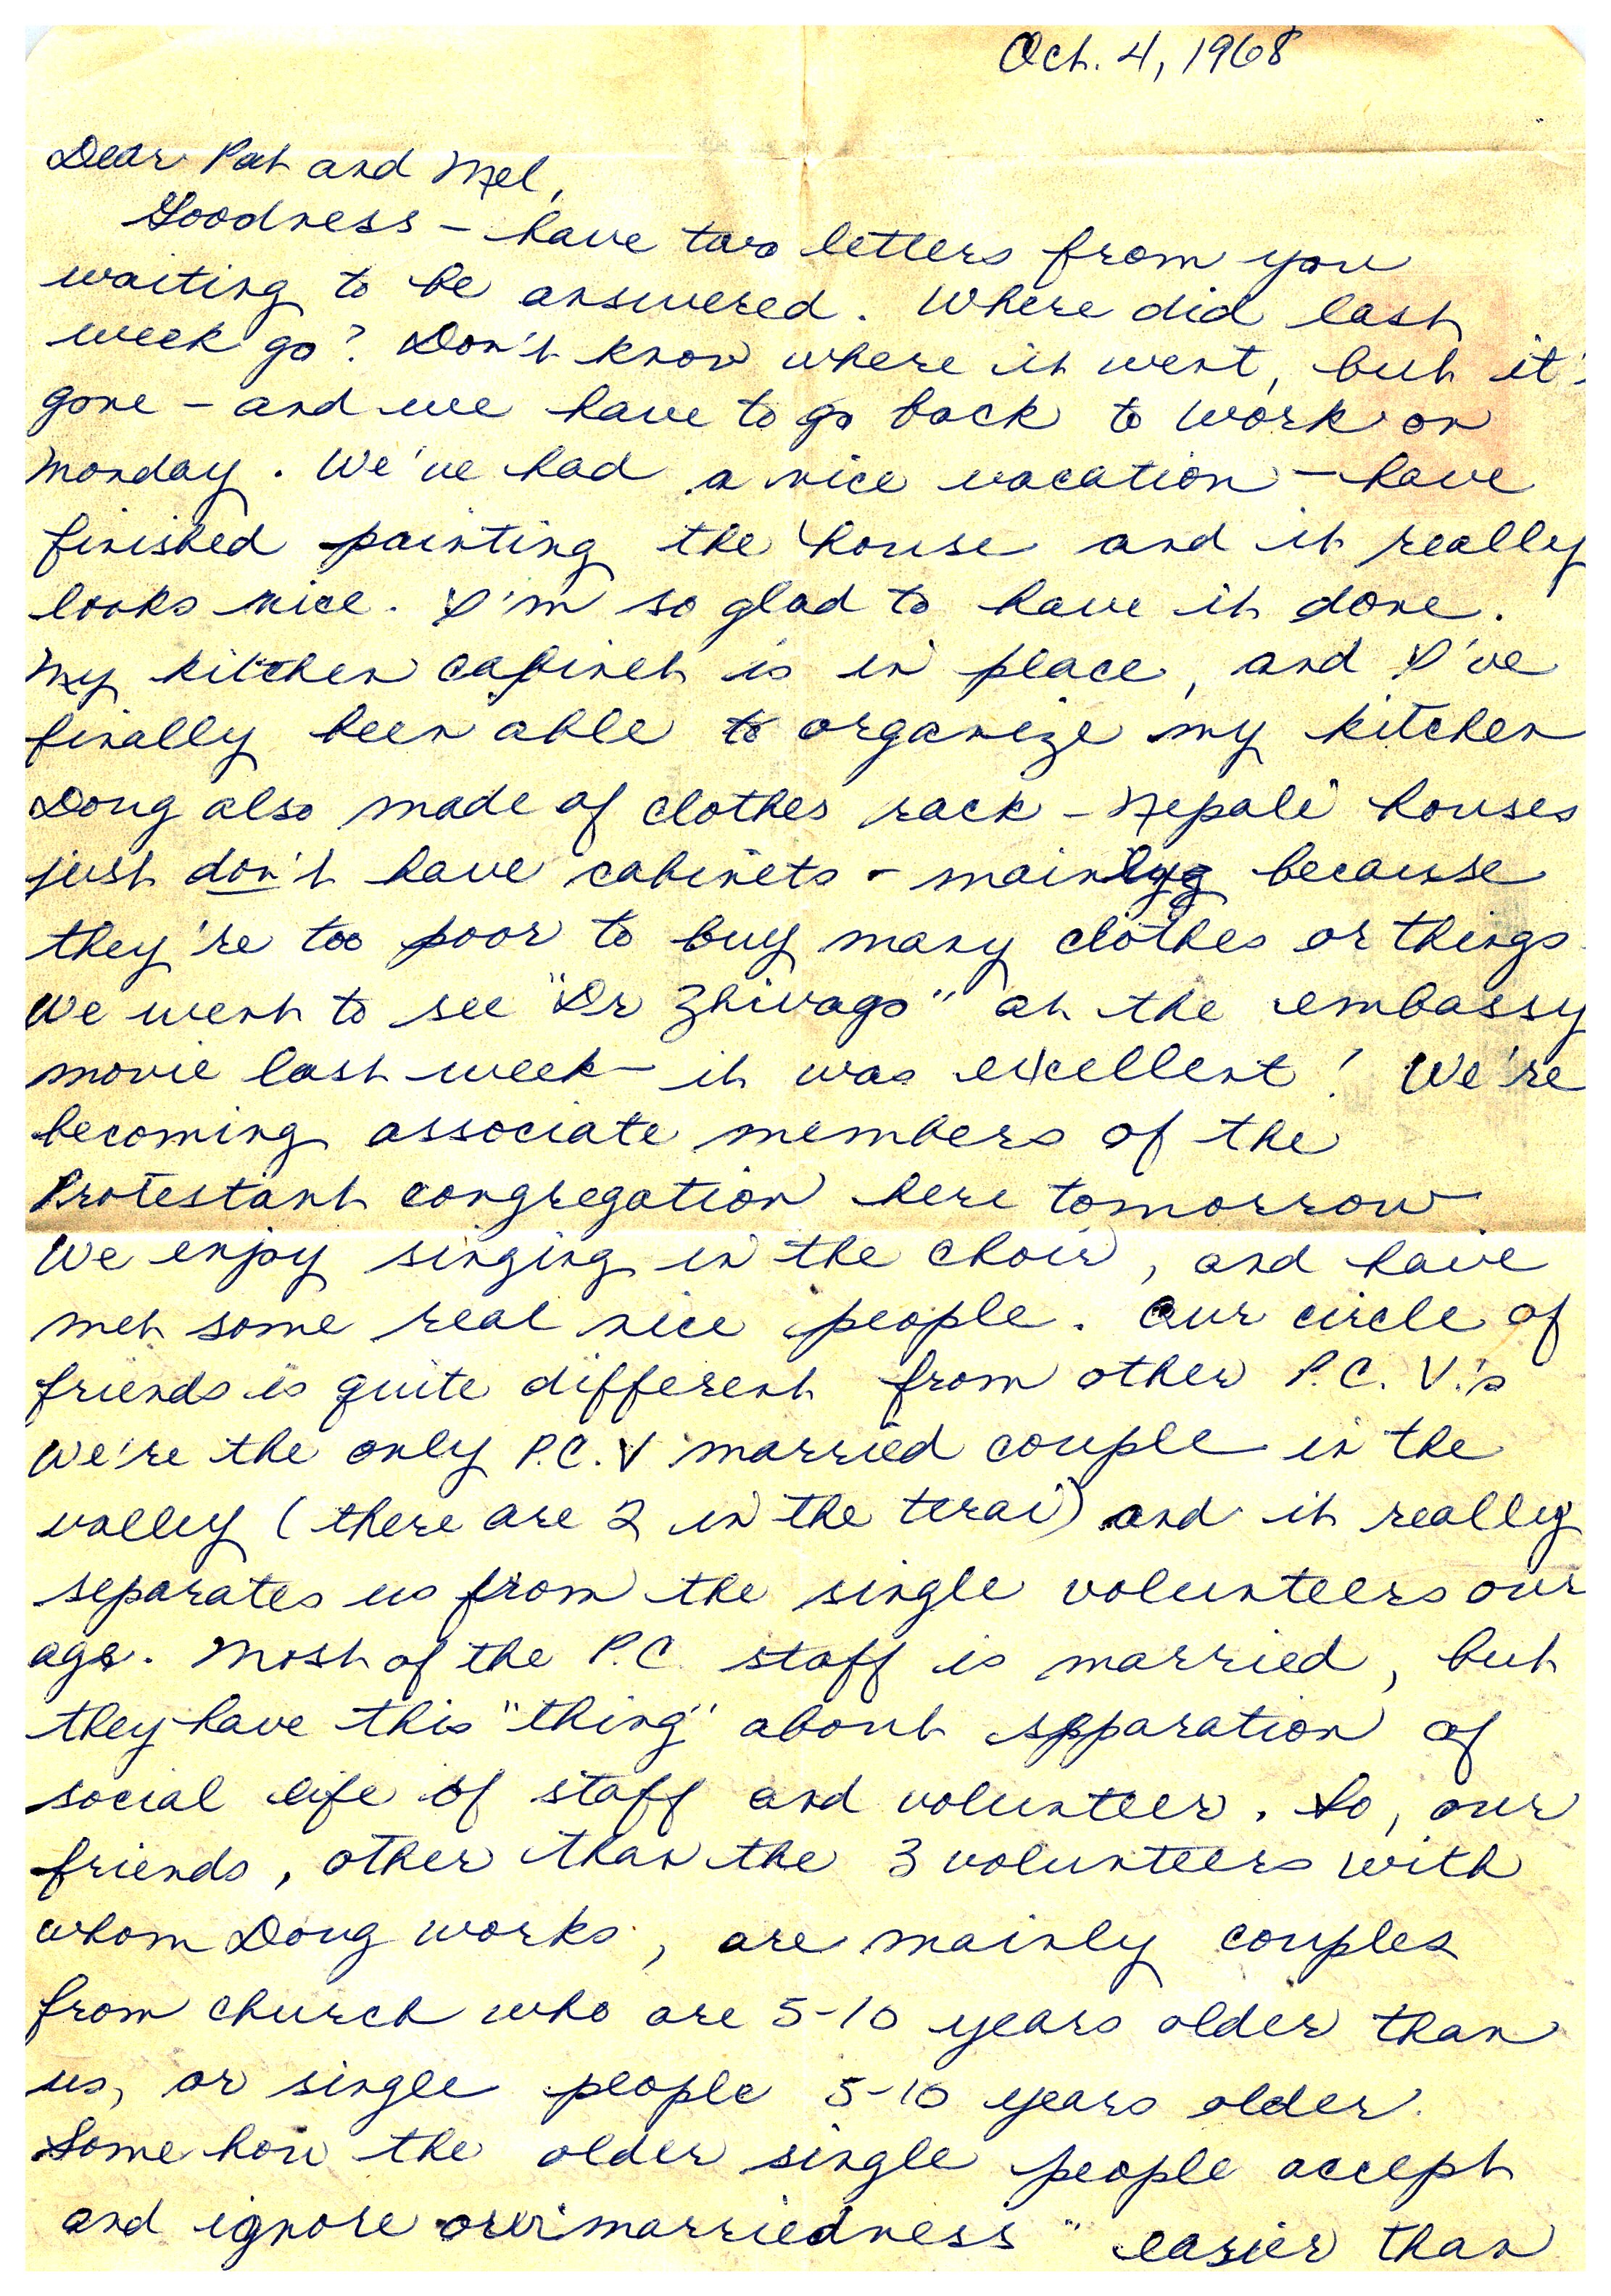 Oct. 4, 1968
Dear Pat and Mel,
Goodness - have two letters from you
waiting to be answered. Where did last
week go? Don't know where it went, but it's
gone - and we have to go back to work on
Monday. We've had a nice vacation - have
finished painting the house and it really
looks nice. I'm so glad to have it done.
My kitchen cabinet is in place, and I've
finally been able to organize my kitchen
Doug also made of clothes rack - Nepali houses
just don't have cabinets - mainly because
they're too poor to buy many clothes or things.
We went to see "Dr Zhivago" at the embassy
movie last week - it was excellent! We're
becoming associate members of the
Protestant congregation here tomorrow.
We enjoy singing in the choir, and have
met some real nice people. Our circle of
friends is quite different from other P.C.V.'s
We're the only P.C.V married couple in the
valley (there are 2 in the terai) and it really
separates us from the single volunteers our
age. Most of the P.C. staff is married, but
they have this "thing" about separation of
social life of staff and volunteer. So, our
friends, other than the 3 volunteers with
whom Doug works, are mainly couples
from church who are 5-10 years older than
us, or single people 5-10 years older.
Some how the older single people accept
and ignore our marriedness" easier than